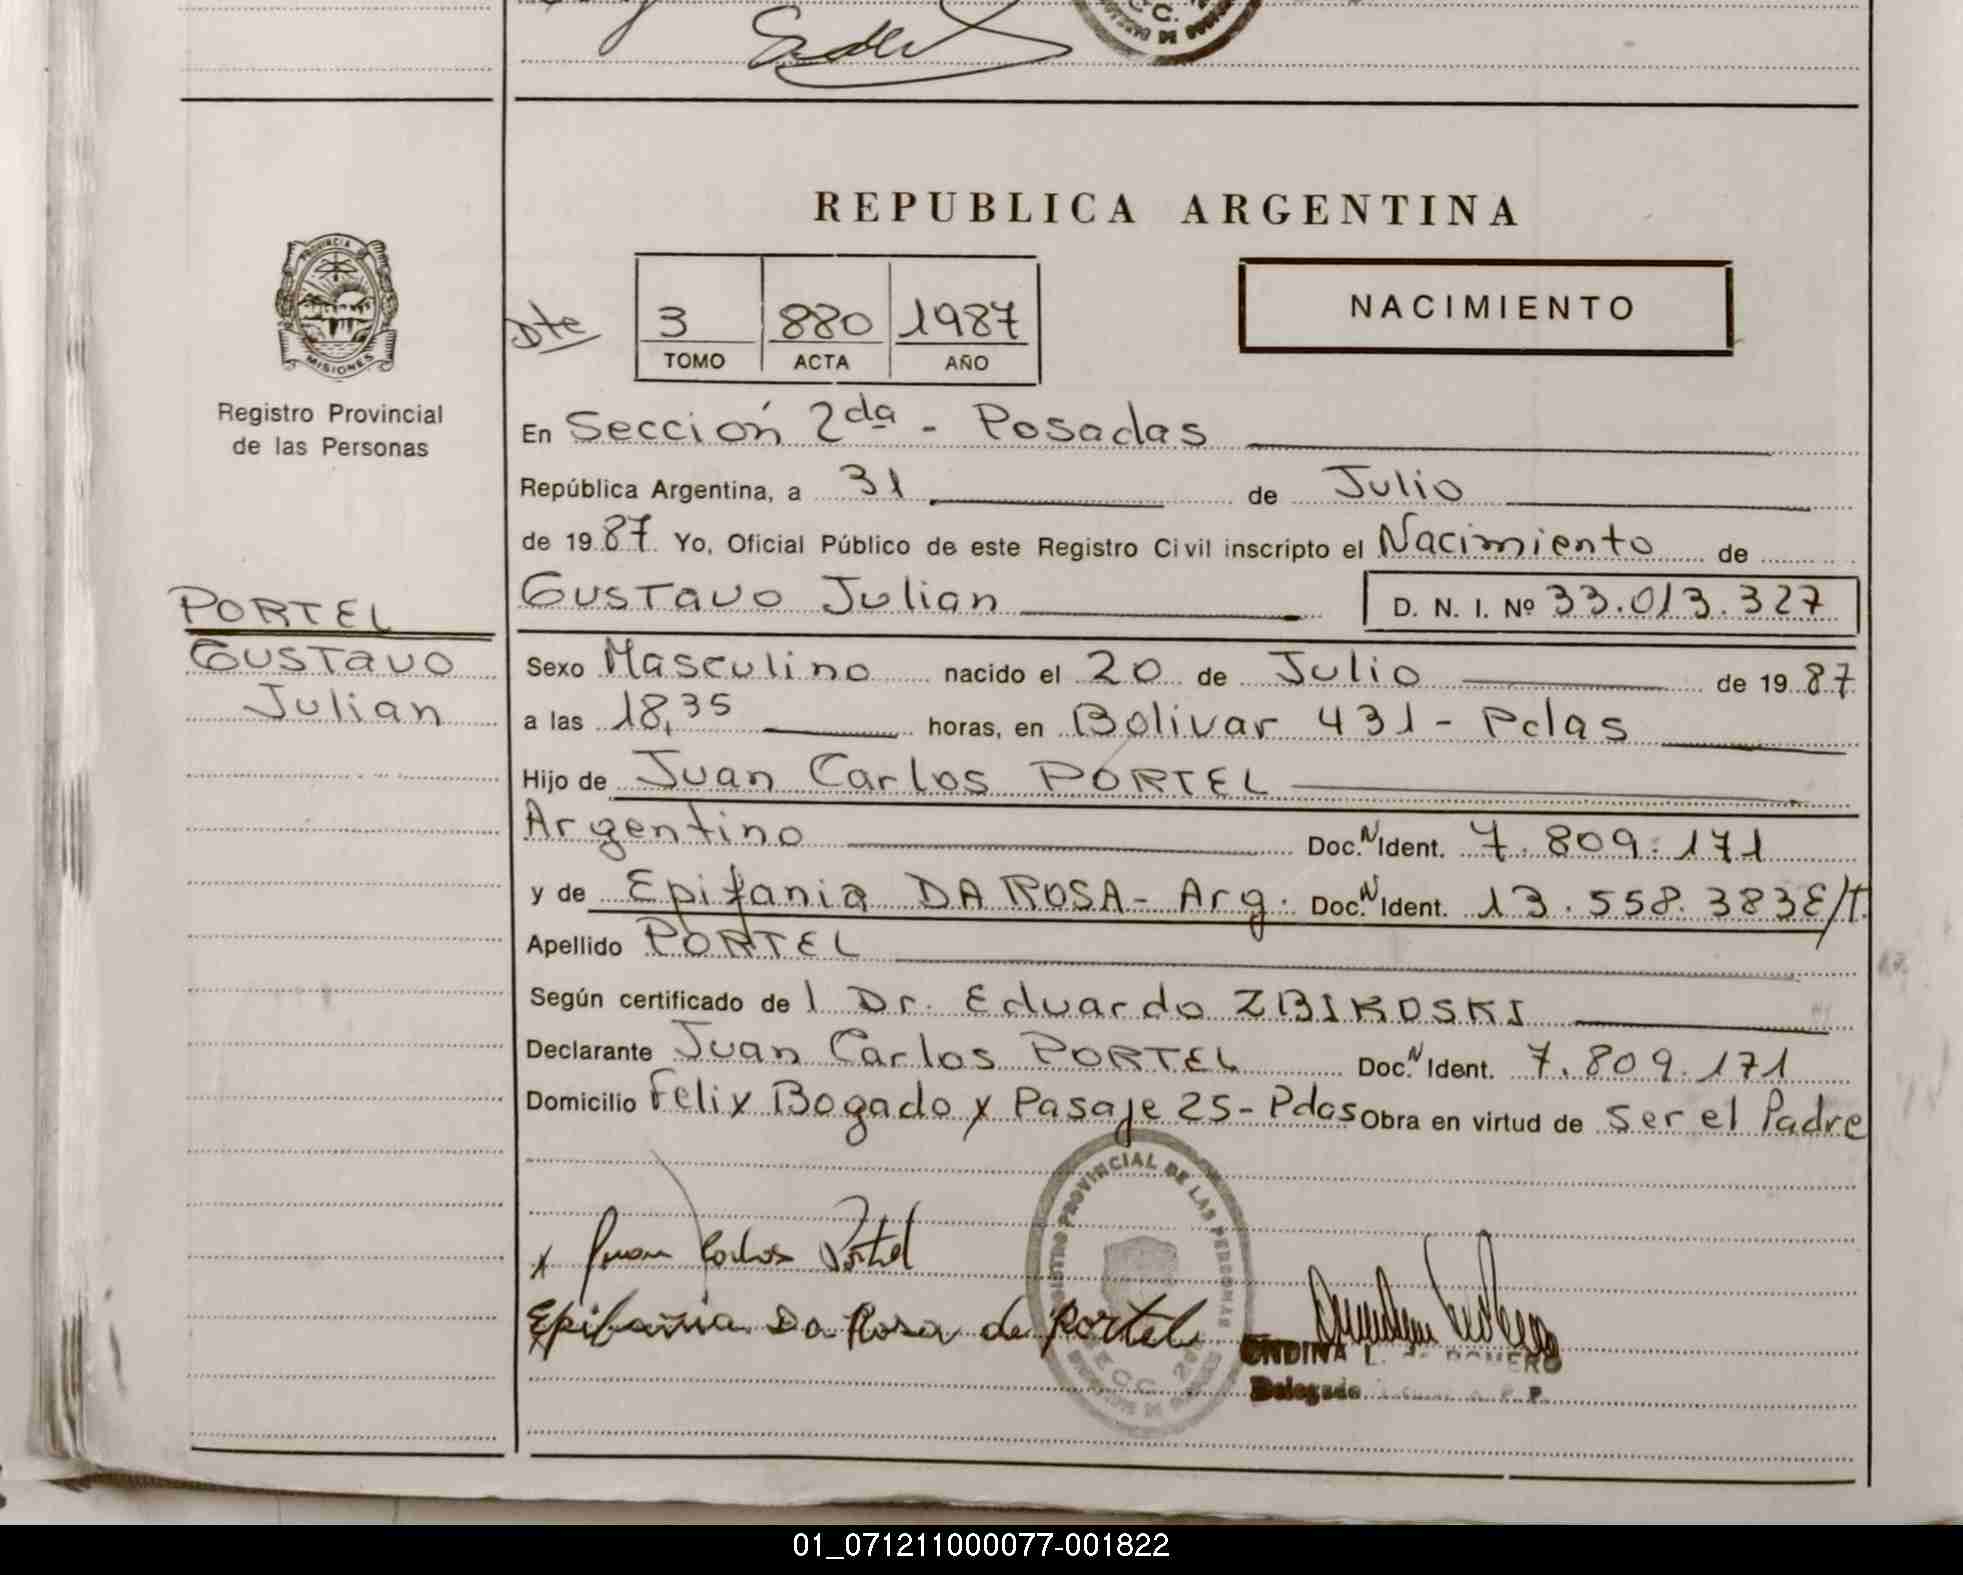 REPUBLICA ARGENTINA
PROVINCIA DE
MISIONES
Registro Provincial
de las Personas
Dte
3 880 1987
TOMO ACTA AÑO
NACIMIENTO
En Sección 2da - Posadas
República Argentina, a 31 de Julio
de 1987 Yo, Oficial Público de este Registro Civil inscripto el Nacimiento de
Gustavo Julian D. N. I. Nº 33.013.327
PORTEL
Gustavo
Julian
Sexo Masculino nacido el 20 de Julio de 1987
a las 18,35 horas, en Bolivar 431 - Pdas
Hijo de Juan Carlos PORTEL
Argentino Doc. N Ident. 7.809.171
y de Epifania DA ROSA - Arg. Doc. N Ident. 13.558.383 E/T.
Apellido PORTEL
Según certificado de l Dr. Eduardo ZBIKOSKI
Declarante Juan Carlos PORTEL Doc. N Ident. 7.809.171
Domicilio Felix Bogado y Pasaje 25 - Pdas Obra en virtud de Ser el Padre
REGISTRO PROVINCIAL DE LAS PERSONAS
x Juan Carlos Portel
Epifania Da Rosa de Portel
ROMERO
Delegada
01_071211000077-001822